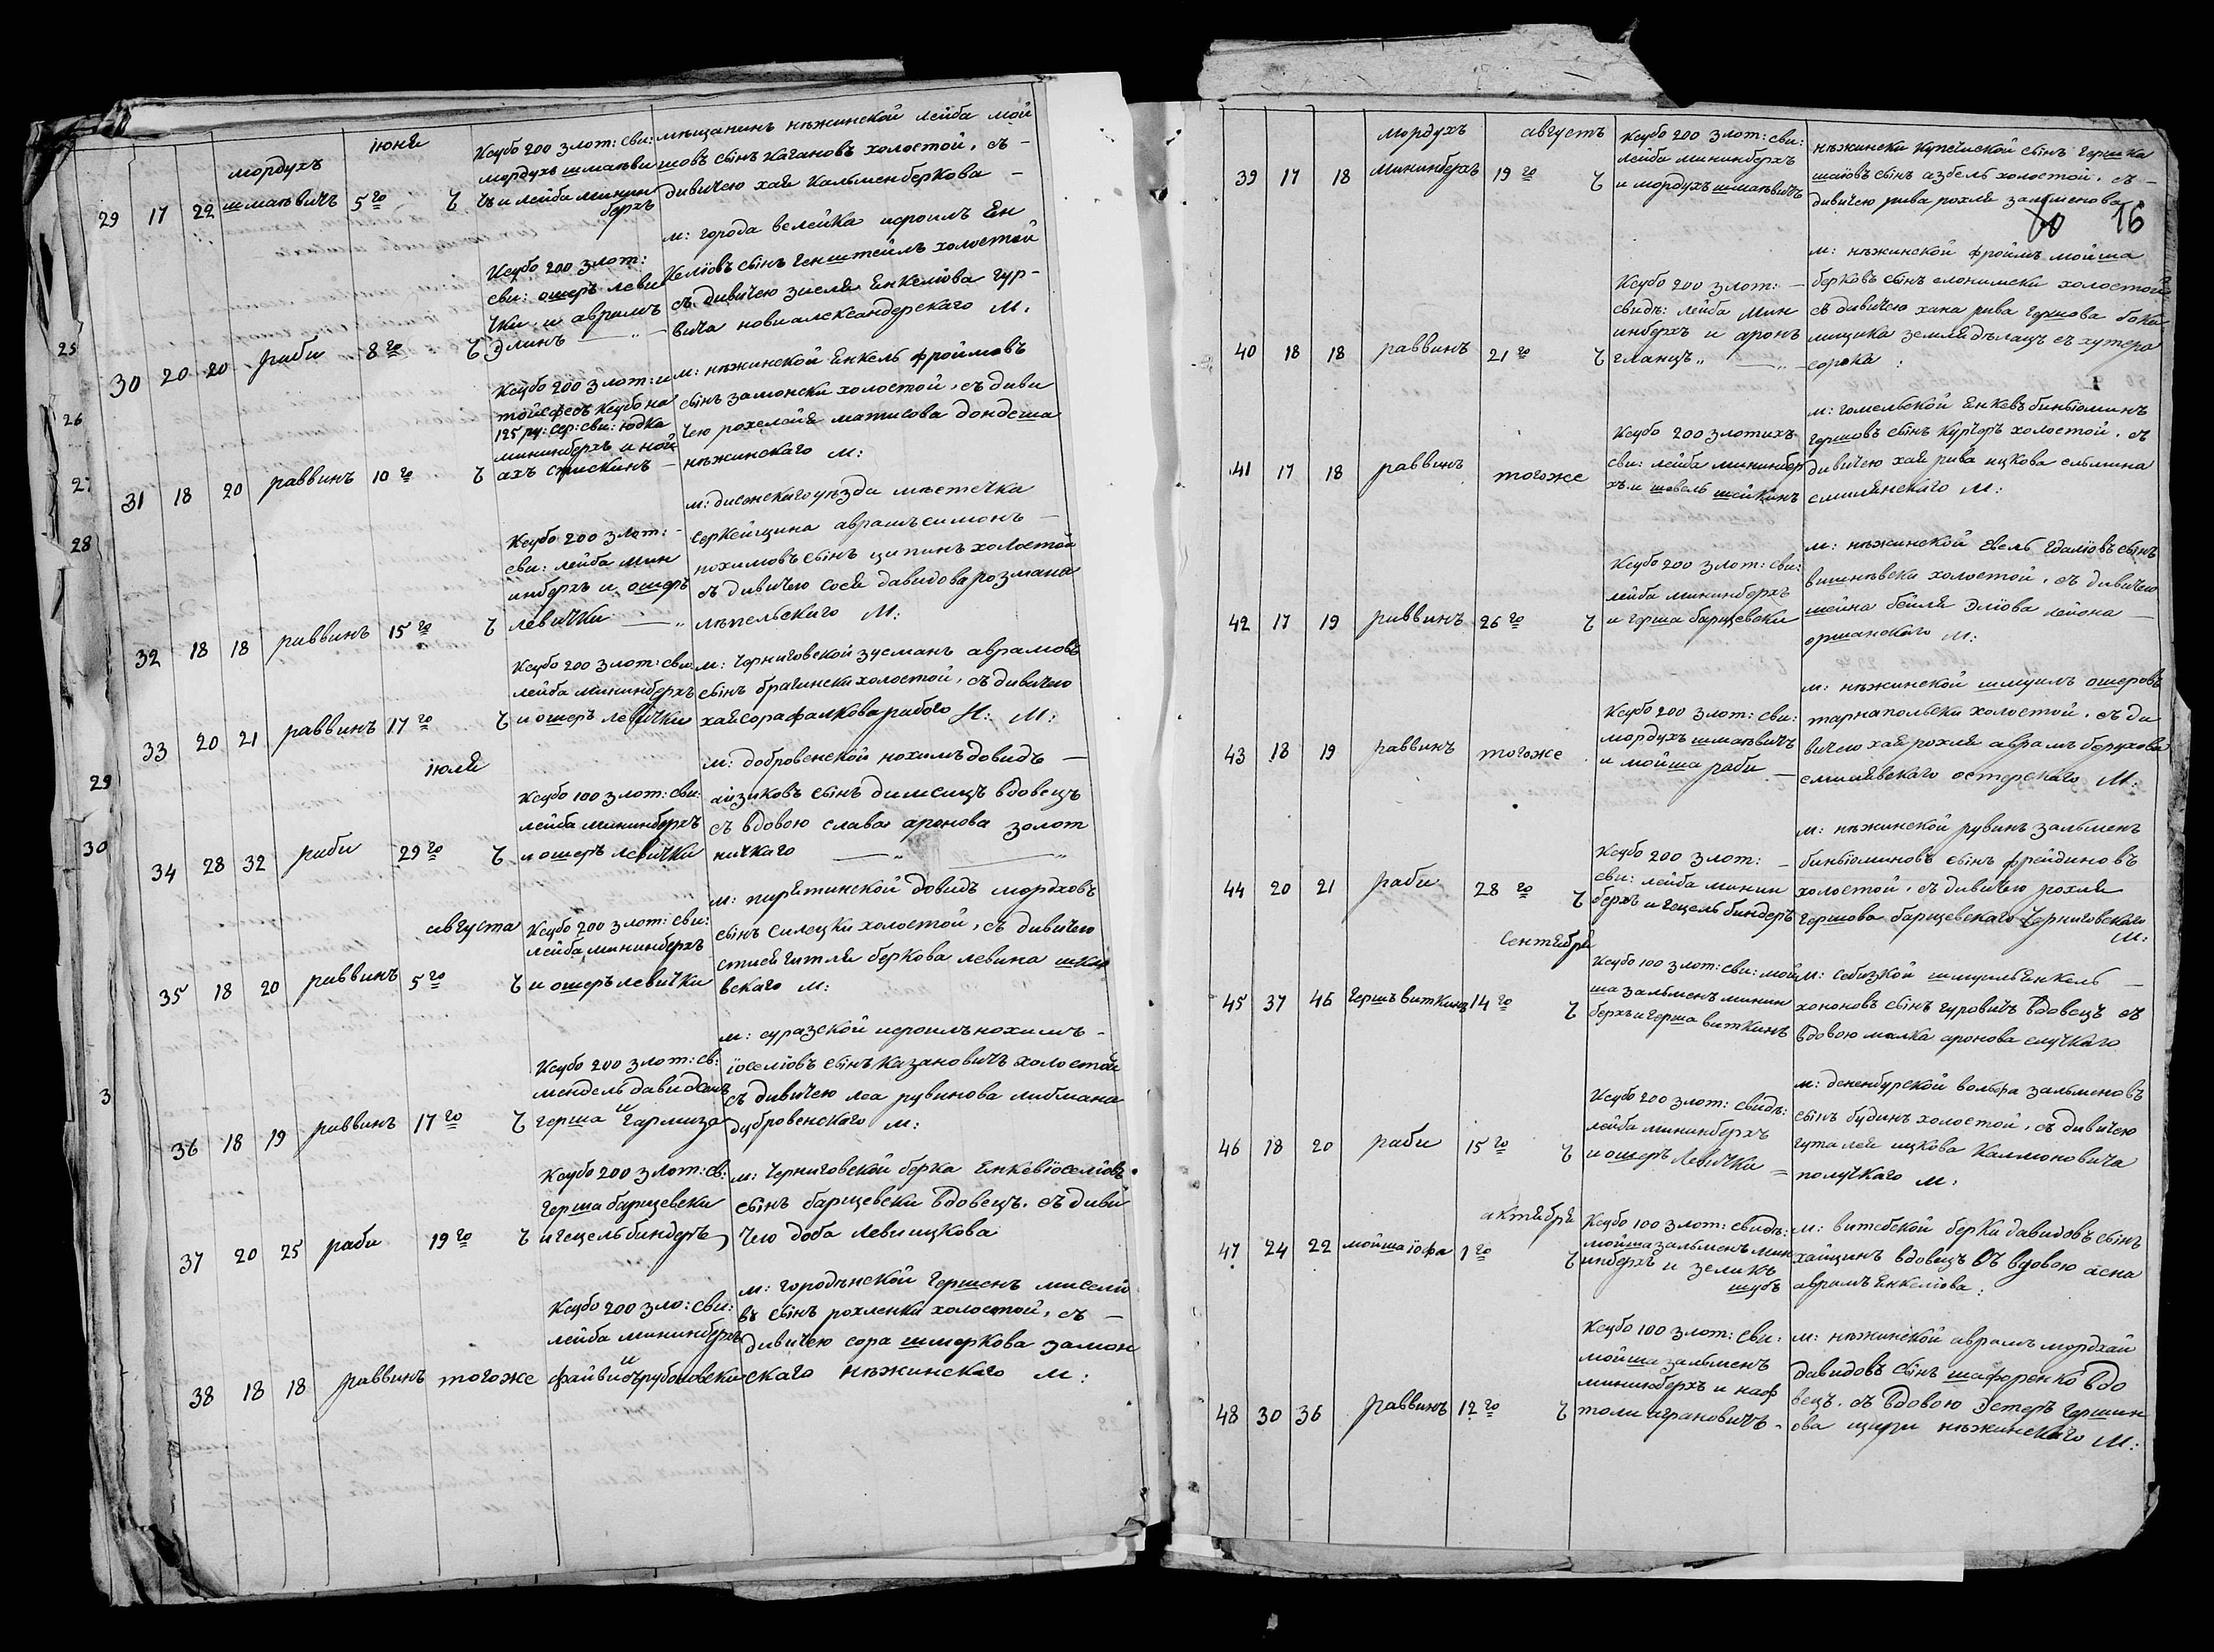 29 17 22 мордухъ шмаѣвичъ
іюня 5го Ч
Ксубо 200 злот: сви:
мордухъ шмаѣви
чъ и лейба минин
берхъ
мѣщанинъ нѣжинской лейба мой
шовъ сынъ кагановъ холостой, съ
дивичею хая кальменберкова
25
30 20 20 раби 8го Ч
Ксубо 200 злот:
сви: ошеръ леви
чки и аврамъ
Элинъ
м: города велейка исроимъ Ен
келіовъ сынъ генштейнъ холостой
съ дивичею зисля Енкеліова гур-
вича новиалександерскаго м.
26
27
31 18 20 раввинъ 10го Ч
Ксубо 200 злот: и
тойсфесъ ксубо на
125 ру: сер: сви: юдка
мининберхъ и ной
ахъ
м: нѣжинской Енкель фроймовъ
сынъ замонски холостой, съ диви
чею рохелайя матисова дондеша
нѣжинскаго м:
28
32 18 18 раввинъ 15го Ч
Ксубо 200 злот:
сви: лейба мин
инберхъ и ошеръ
левички
м: дисенскаго уѣзда мѣстечка
серкейщина аврамъ симонъ
нохимовъ сынъ ципинъ холостой
съ дивичею сося давидова розмана
лѣпельскаго м:
33 20 21 раввинъ 17го Ч
Ксубо 200 злот: сви:
лейба мининберхъ
и ошеръ левички
м: черниговской зусманъ аврамовъ
сынъ брагински холостой, съ дивичею
хая сора фалкова рабого Н: М:
29
30
34 28 32 раби
іюля
29го Ч
Ксубо 100 злот: сви:
лейба мининберхъ
и ошеръ левички
м: добровенской нохимъ довидъ
айзиковъ сынъ диментъ вдовецъ
съ вдовою слава аронова золот
ничкаго
35 18 20 раввинъ
августа
5го Ч
Ксубо 200 злот: сви:
лейба мининберхъ
и ошеръ левички
м: пирятинской довидъ мордховъ
сынъ силецки холостой, съ дивичею
стися гитля беркова левина шкло
вскаго м:
3
36 18 19 раввинъ 17го Ч
Ксубо 200 злот: св:
мендель давидсонъ
и
герша гармиза
м: суразской исроимъ нохимъ
іоселіовъ сынъ казановичъ холостой
съ дивичею леа рувинова либмана
дубровенскаго м:
37 20 25 раби 19го Ч
Ксубо 200 злот: св:
герша барщевски
и гецель биндеръ
м: черниговской берка Енкевіоселіовъ
сынъ барщевски вдовецъ, съ диви
чею доба леви ицкова
38 18 18 раввинъ тогоже
Ксубо 200 зло: сви:
лейба мининберхъ
и
файвишъ рубановски
м: городнянской гершенъ мисели
въ сынъ рохленки холостой, съ
дивичею сора шморкова замон
скаго нѣжинскаго м:
39 17 18 мордухъ мининберхъ
августъ
19го Ч
Ксубо 200 злот: сви:
лейба мининберхъ
и мордухъ шмаѣвичъ
нѣжински купеческой сынъ гершка
шаіовъ сынъ азбель холостой, съ
дивичею рива рохля зальменова
80 16
40 18 18 раввинъ 21го Ч
Ксубо 200 злот:
свидъ: лейба мин
инберхъ и аронъ
гланцъ
м: нѣжинской фроймъ мойша
берковъ сынъ слонимски холостой
съ дивичею хана рива гершова бока
мищика земледѣлацъ съ хутера
сорока:
41 17 18 раввинъ тогоже
Ксубо 200 злотихъ
сви: лейба мининбер
хъ и шевель шейкинъ
м: гомельской Енкевъ биньіоминъ
гершовъ сынъ курчеръ холостой, съ
дивичею хая рива ицкова ельмина
смилянскаго м:
42 17 19 раввинъ 26го Ч
Ксубо 200 злот: сви:
лейба мининберхъ
и герша барщевски
м: нѣжинской Евель гдаліовъ сынъ
вишнѣвски холостой, съ дивичею
шейна бейля Эліова лейона
оршанскаго м:
43 18 19 раввинъ тогоже
Ксубо 200 злот: сви:
мордухъ шмаѣвичъ
и мойша раби
м: нѣжинской шмуилъ ошеровъ
тарнапольски холостой, съ ди
вичею хая рохля аврамъ борухова
смилявскаго остерскаго м.
44 20 21 раби 28го Ч
Ксубо 200 злот:
сви: лейба минин
берхъ и гецель биндеръ
м: нѣжинской рувинъ зальменъ
биньіоминовъ сынъ фрейдиновъ
холостой, съ дивичею рохля
гершова барщевскаго черниговскаго
м:
45 37 46 гершъ виткинъ
сентября
14го Ч
Ксубо 100 злот: сви: мой
ша зальменъ минин
берхъ и герша виткинъ
м: себизкой шмуиль Енкель
хононовъ сынъ гуровичъ вдовецъ съ
вдовою малка аронова слуцкаго
46 18 20 раби 15го Ч
Ксубо 200 злот: свидъ:
лейба мининберхъ
и ошеръ левички
м: дененбурской вольфа зальменовъ
сынъ будинъ холостой, съ дивичею
гута лея ицкова калмоновича
полуцкаго м:
47 24 22 мойша іофа
актября
1го Ч
Ксубо 100 злот: свидъ:
мойша зальменъ мин
инберхъ и зеликъ
шубъ
м: витебской берка давидовъ сынъ
хайцинъ вдовецъ съ вдовою асна
аврамъ Енкеліова:
48 30 36 раввинъ 12го Ч
Ксубо 100 злот: сви:
мойша зальменъ
мининберхъ и наф
толи аграновичъ
м: нѣжинской аврамъ мордхай
давидовъ сынъ шафоренко вдо
вецъ, съ вдовою Эстеръ гершин
ова нѣжинскаго м: